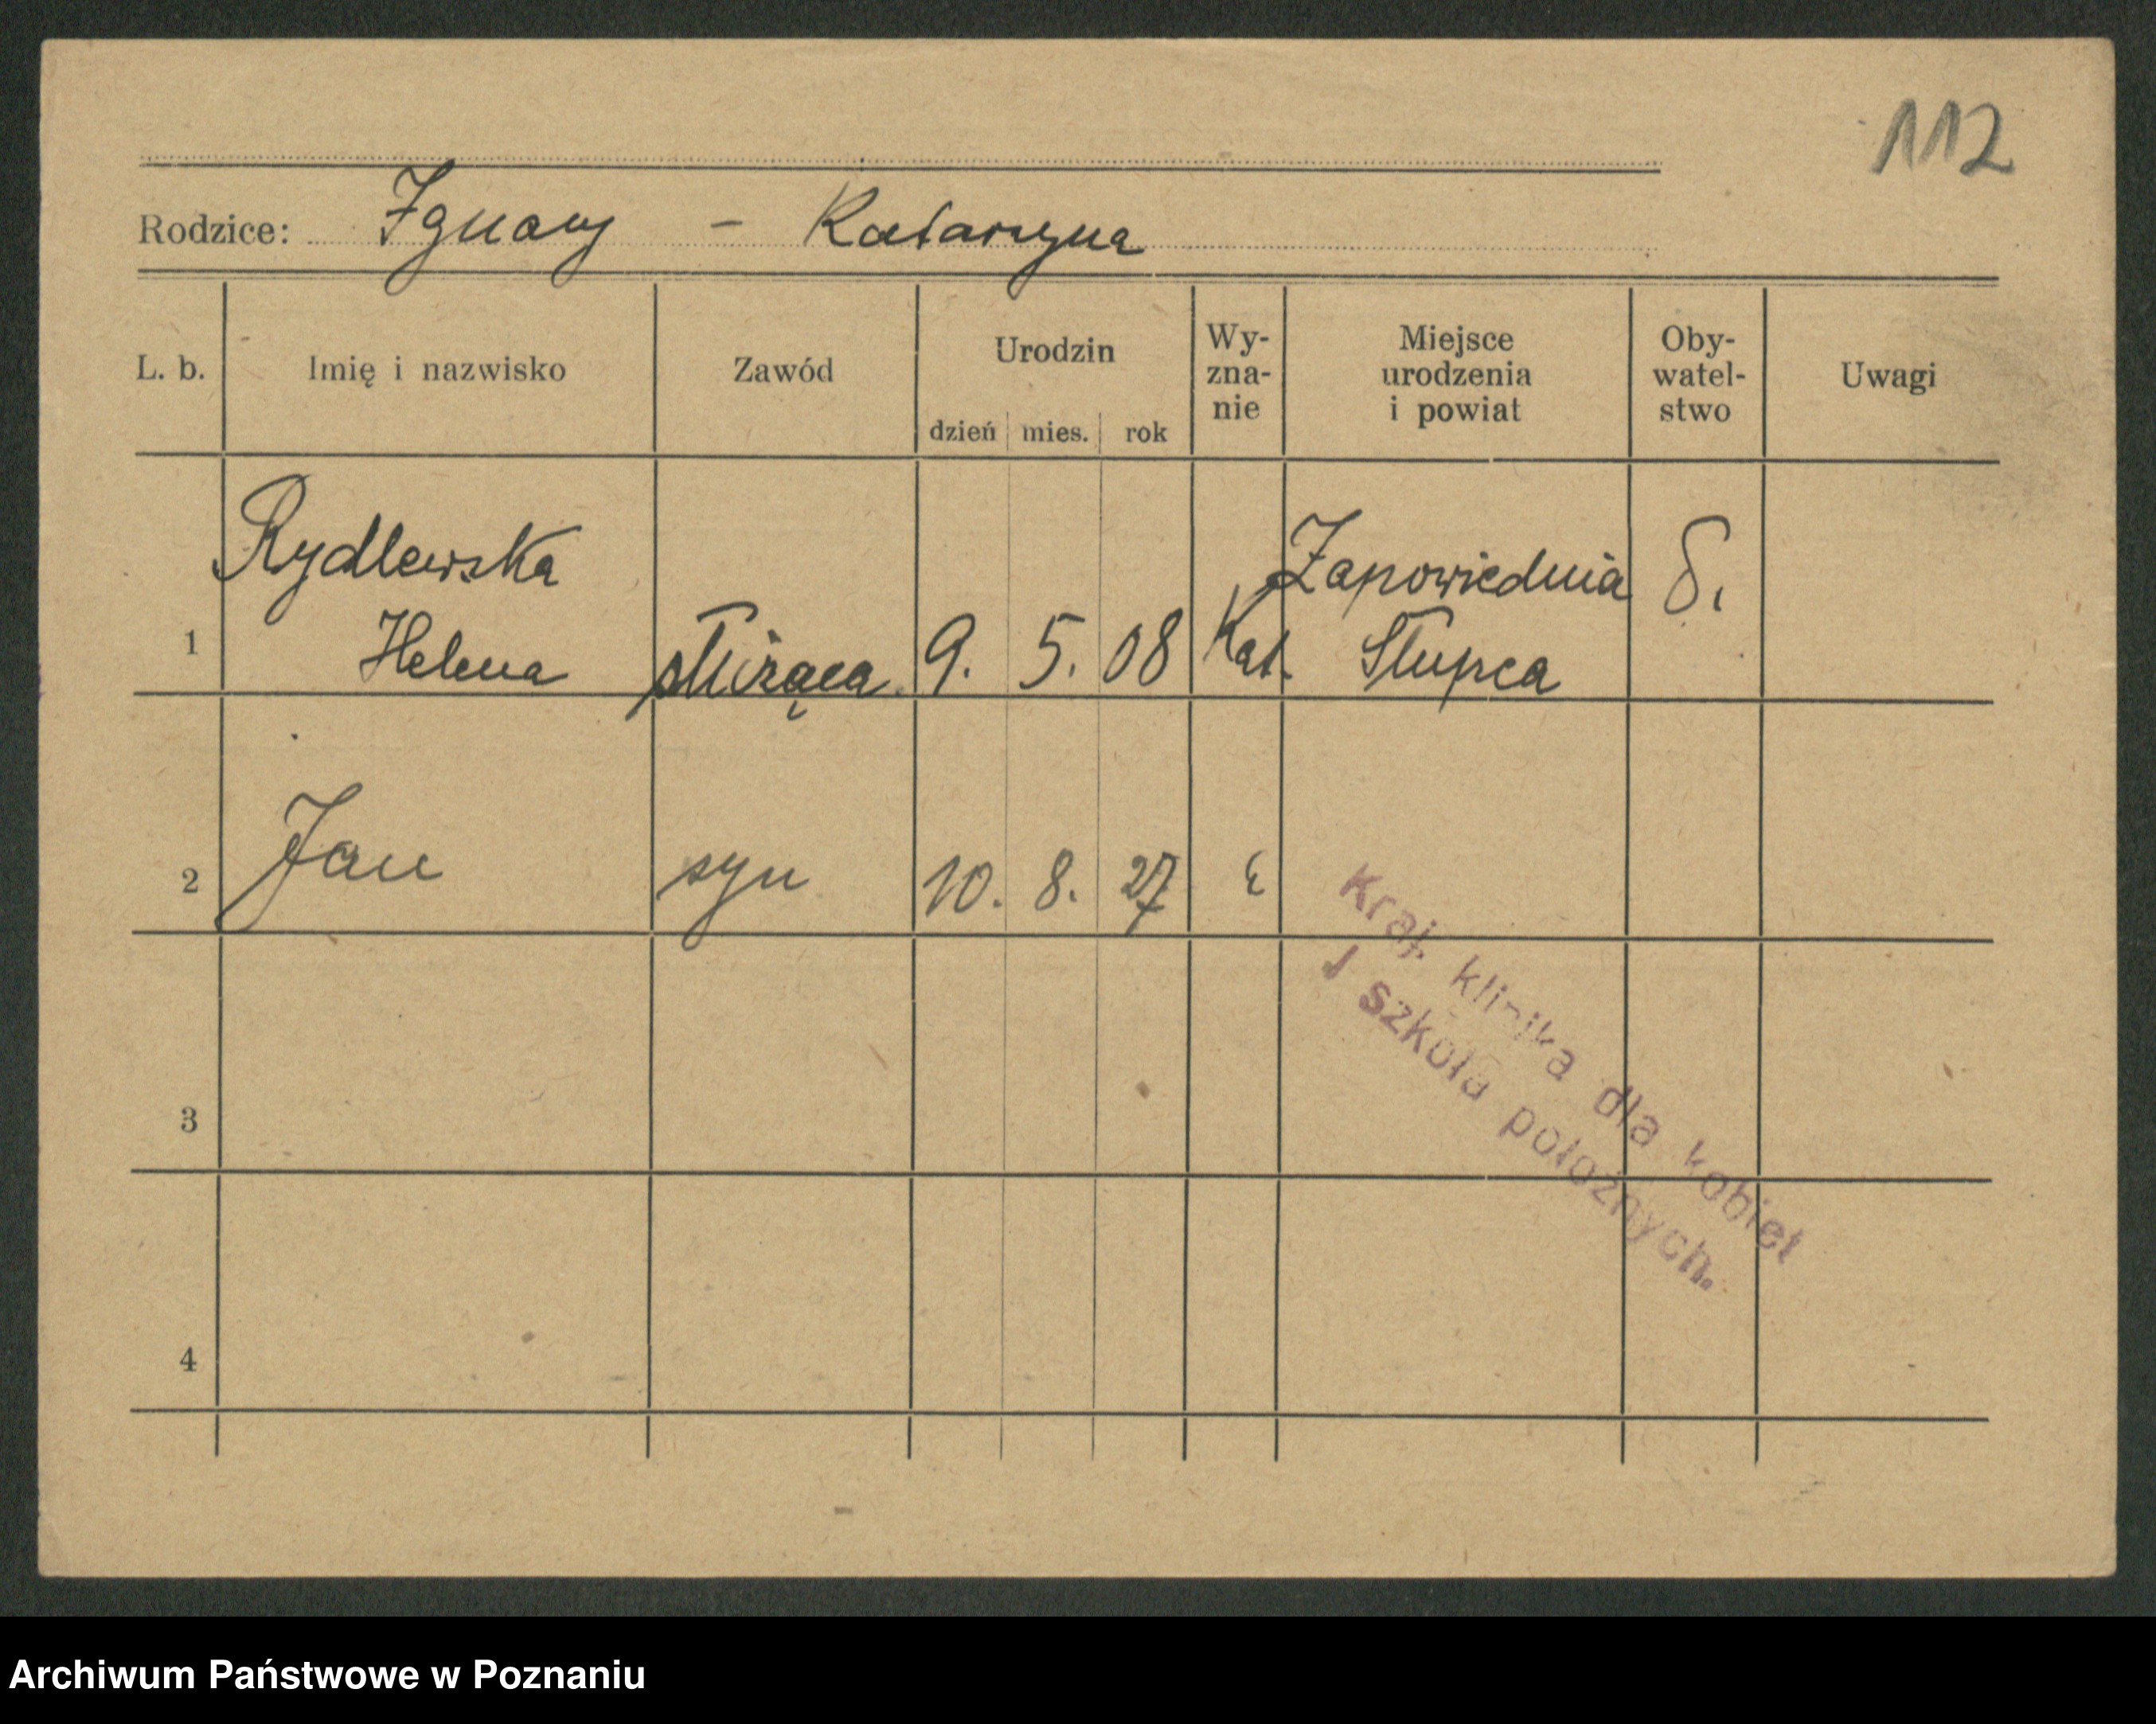 112
Rodzice: Ignacy - Katarzyna
L. b. Imię i nazwisko Zawód Urodzin dzień mies. rok Wy-zna-nie Miejsce urodzenia i powiat Oby-watel-stwo Uwagi
Rydlewska Zapowiednia
1 Helena służąca 9. 5. 08 Kat. Słupca
2 Jan syn 10. 8. 27
3
4
Kraj. klinika dla kobiet
I szkoła położnych.
Archiwum Państwowe w Poznaniu